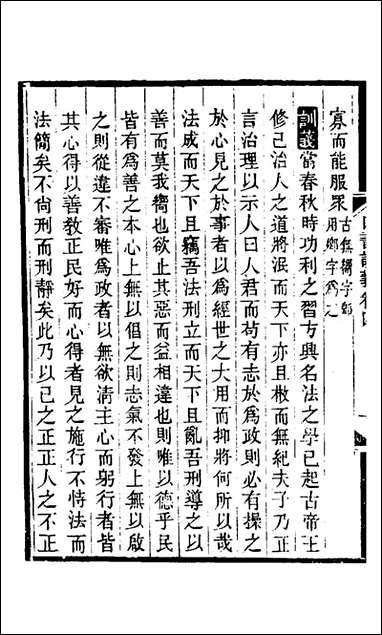 寡而能服眾古無嚮字郎用鄉字爲之
訓義當春秋時功利之習方興名法之學已起古帝王
修己治人之道將泯而天下亦且敝而無紀夫子乃正
言治理以示人曰人君而苟有志於爲政則必有操之
於心見之於事者以爲經世之大用而抑將何所以哉
法成而天下且竊吾法刑立而天下且亂吾刑導之以
善而莫我嚮也欲止其惡而益相違也則唯以德乎民
皆有爲善之本心上無以倡之則志氣不發上無以啟
之則從違不審唯爲政者以無欲淸主心而躬行者皆
其心得以善教正民好而心得者見之施行不恃法而
法簡矣不尙刑而刑靜矣此乃以己之正正人之不正
四書訓義卷四